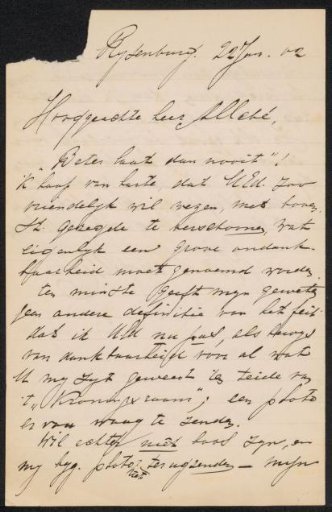 Rysenburg. 22 Jan. 02
Hooggeachte heer Allebé,
"Beter laat dan nooit"!
Ik hoop van harte, dat UEd. zoo
vriendelijk wil wezen, met boven-
st. gezegde te verschoonen, wat
eigenlijk een grove ondank-
baarheid moet genoemd worden,
ten minste geeft mijn geweten
geen andere definitie van het feit
dat ik UEd nu pas, als bewijs
van dankbaarheid voor al wat
U my zyt geweest ten tyde van
't "Kroningsraam", een photo
er van waag te zenden.
Wil echter niet boos zyn, en
my byg. photo niet terugzenden – mijn